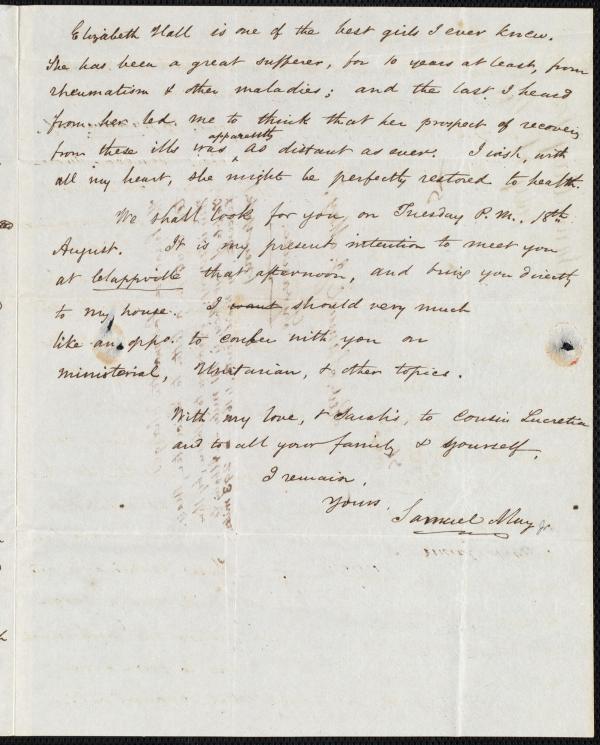 Elizabeth Hall is one of the best girls I ever knew.
She has been a great sufferer, for 10 years at least, from
rheumatism & other maladies; and the last I heard
from her led me to think that her prospect of recovery
apparently
from these ills was ^ as distant as ever. I wish, with
all my heart, she might be perfectly restored to health.
We shall look for you, on Tuesday P.M., 18th
August. It is my present intention to meet you
at Clappville that afternoon, and bring you directly
to my house. I want should very much
like an oppo. to confer with you on
ministerial, Unitarian, & other topics.
With my love, & Sarah's, to Cousin Lucretia
and to all your family & yourself,
I remain,
Yours,
Samuel May Jr.